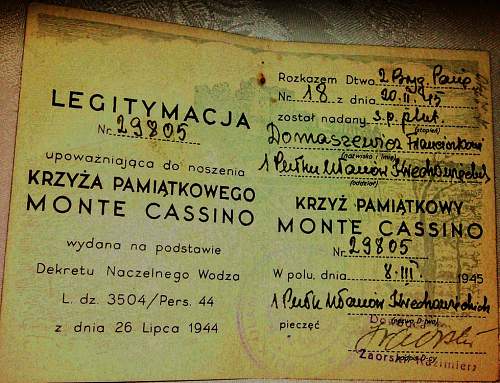 LEGITYMACJA
Nr. 29805
upoważniająca do noszenia
KRZYŻA PAMIĄTKOWEGO
MONTE CASSINO
wydana na podstawie
Dekretu Naczelnego Wodza
L. dz. 3504/Pers. 44
z dnia 26 Lipca 1944
Rozkazem Dtwo 2 Bryg. Panc
Nr. 18 z dnia 20.II.45
został nadany s.p. plut.
(stopień)
Domaszewicz Franciszkowi
(nazwisko i imię)
1 Pułku Ułanów Krechowieckich
(oddział)
KRZYŻ PAMIĄTKOWY
MONTE CASSINO
Nr. 29805
W polu, dnia 8.III. 1945
1 Pułk Ułanów Krechowieckich
pieczęć
Zaorski Kazimierz